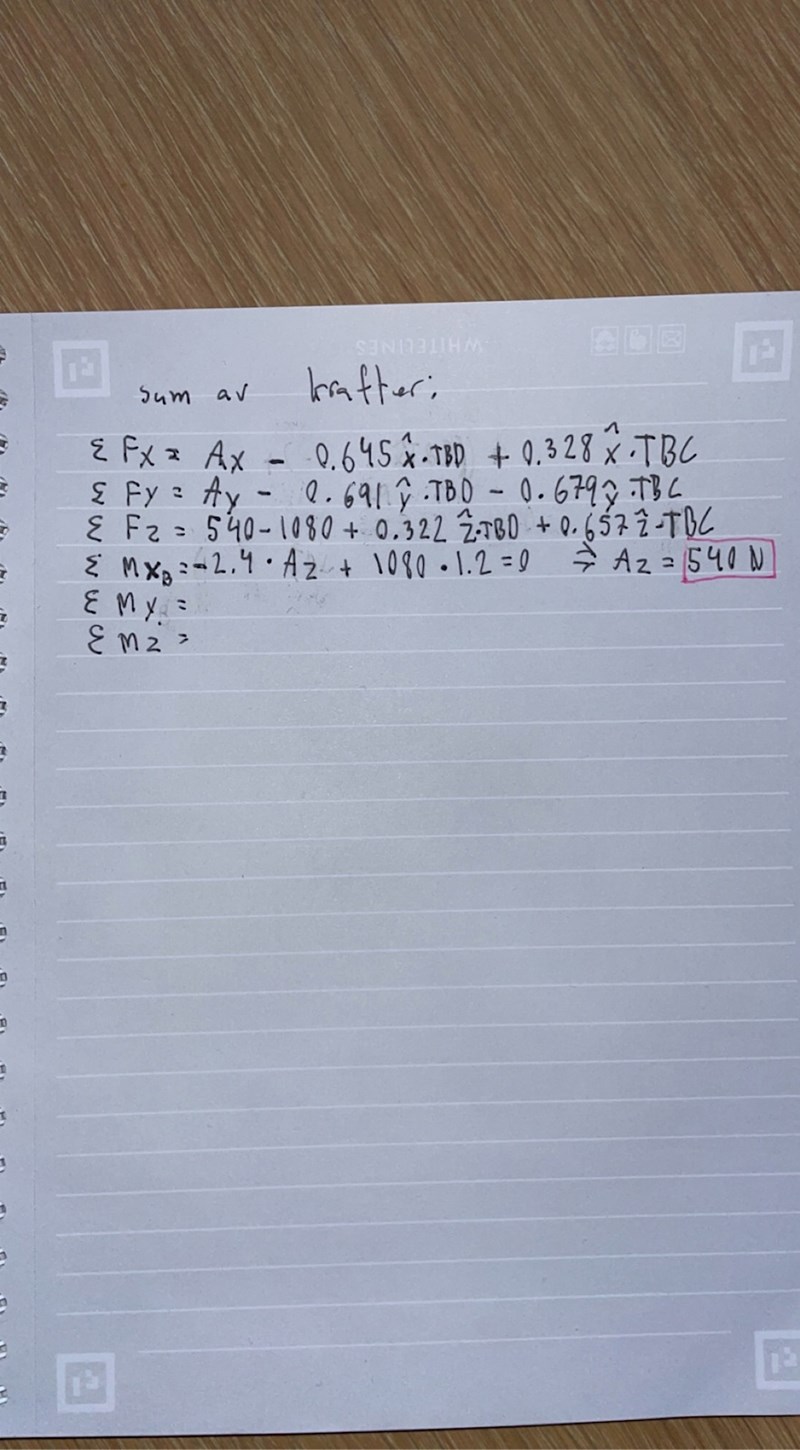 WHITELINES
sum av krafter:
Σ Fx = Ax - 0.645 x̂·TBD + 0.328 x̂·TBC
Σ Fy = Ay - 0.691 ŷ·TBD - 0.679 ŷ·TBC
Σ Fz = 540-1080 + 0.322 ẑ·TBD + 0.657 ẑ·TBC
Σ MxB = -2.4 · Az + 1080 · 1.2 = 0 ⇒ Az = 540 N
Σ My =
Σ Mz =